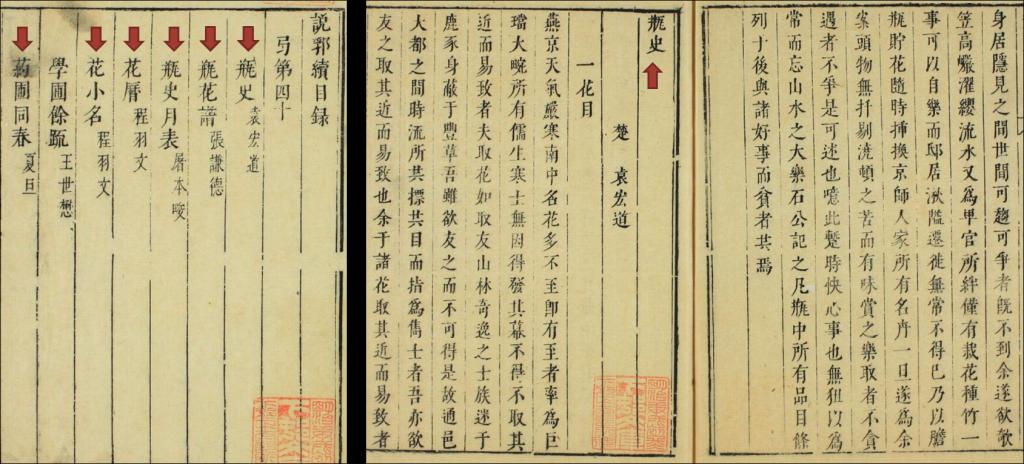 說郛續目錄
弓第四十
瓶史 袁宏道
瓶花譜 張謙德
瓶史月表 屠本畯
花曆 程羽文
花小名 程羽文
學圃餘疏 王世懋
葯圃同春 夏旦
身居隱見之間世間可趨可爭者既不到余遂欲欹
笠高巖濯纓流水又為卑官所絆僅有栽花種竹一
事可以自樂而邸居湫隘遷徙無常不得已乃以膽
瓶貯花隨時插換京師人家所有名卉一旦遂為余
案頭物無扞剔澆頓之苦而有味賞之樂取者不貪
遇者不爭是可述也噫此蹔時快心事也無狃以為
常而忘山水之大樂石公記之凡瓶中所有品目條
列于後與諸好事而貧者共焉
瓶史
楚 袁宏道
一花目
燕京天氣嚴寒南中名花多不至即有至者率為巨
璫大畹所有儒生寒士無因得發其幕不得不取其
近而易致者夫取花如取友山林奇逸之士族迷于
鹿豕身蔽于豐草吾雖欲友之而不可得是故通邑
大都之間時流所共標共目而指為雋士者吾亦欲
友之取其近而易致也余于諸花取其近而易致者